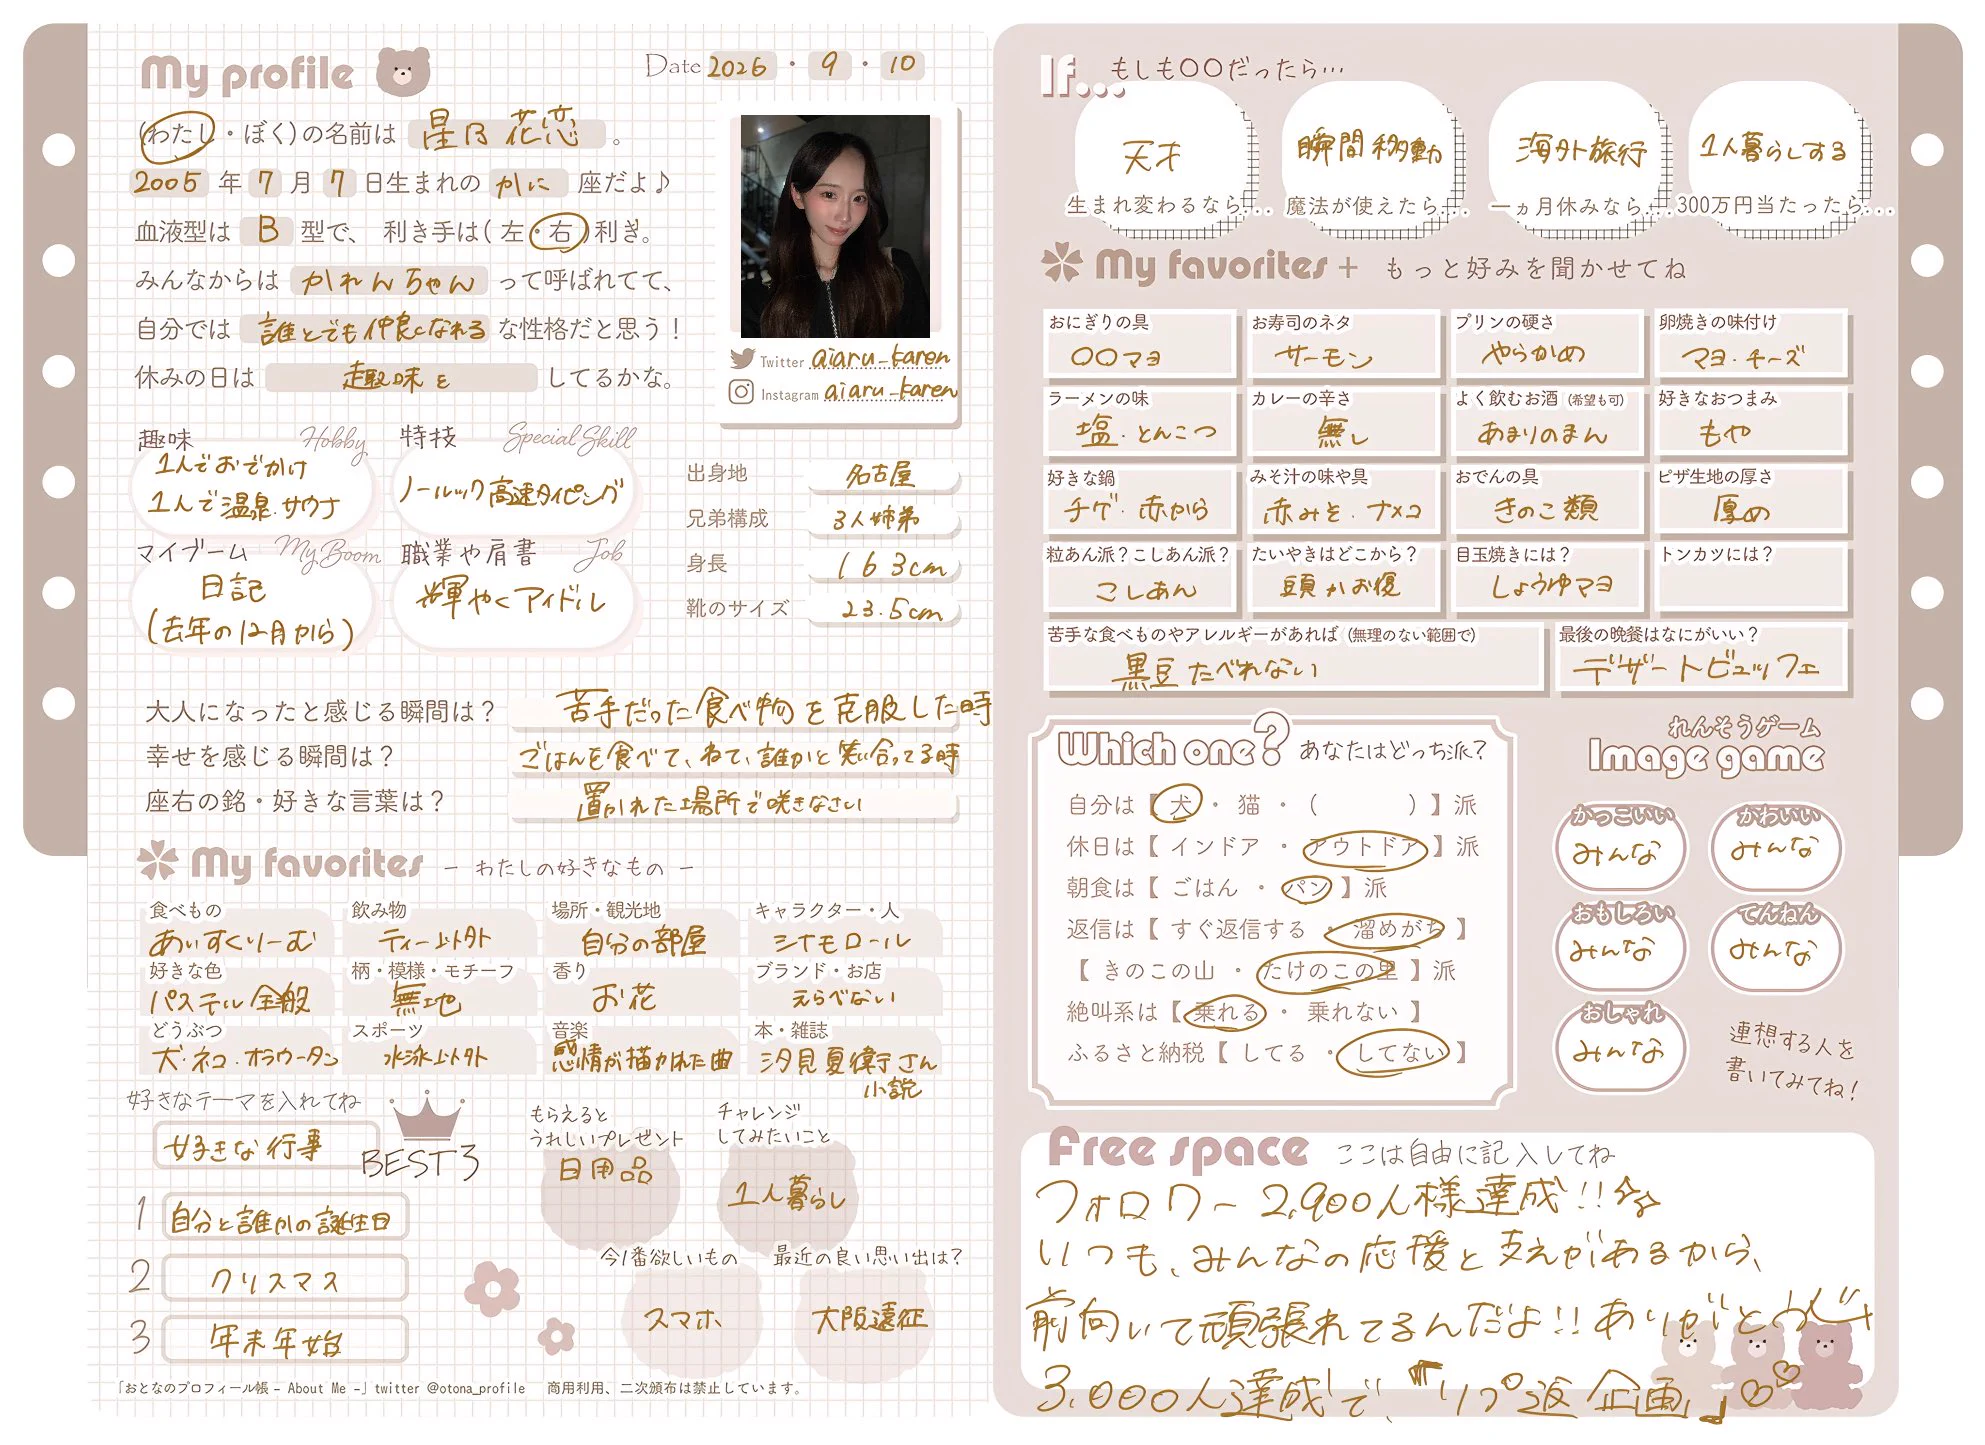 My profile
Date 2026・9・10
(わたし・ぼく)の名前は 星乃 花恋 。
2005 年 7 月 7 日生まれの かに 座だよ♪
血液型は B 型で、 利き手は( 左・右 )利き。
みんなからは かれんちゃん って呼ばれてて、
自分では 誰とでも仲良くなれる な性格だと思う！
休みの日は 趣味を してるかな。
Twitter aiaru_karen
Instagram aiaru_karen
趣味 Hobby
1人でおでかけ
1人で温泉.サウナ
特技 Special Skill
ノールック高速タイピング
マイブーム My Boom
日記
(去年の12月から)
職業や肩書 Job
輝やくアイドル
出身地 名古屋
兄弟構成 3人姉弟
身長 163cm
靴のサイズ 23.5cm
大人になったと感じる瞬間は？ 苦手だった食べ物を克服した時
幸せを感じる瞬間は？ ごはんを食べて、ねて、誰かと笑い合ってる時
座右の銘・好きな言葉は？ 置かれた場所で咲きなさい
My favorites － わたしの好きなもの －
食べもの あいすくりーむ
飲み物 ティー以外
場所・観光地 自分の部屋
キャラクター・人 シナモロール
好きな色 パステル全般
柄・模様・モチーフ 無地
香り お花
ブランド・お店 えらべない
どうぶつ 犬・ネコ・オラウータン
スポーツ 水泳以外
音楽 感情が描かれた曲
本・雑誌 汐見夏衛さん
小説
好きなテーマを入れてね
好きな行事
BEST3
1 自分と誰かの誕生日
2 クリスマス
3 年末年始
もらえると
うれしいプレゼント
日用品
チャレンジ
してみたいこと
1人暮らし
今1番欲しいもの
スマホ
最近の良い思い出は？
大阪遠征
「おとなのプロフィール帳 - About Me -」twitter @otona_profile 商用利用、二次頒布は禁止しています。
If... もしも〇〇だったら…
天才
生まれ変わるなら...
瞬間移動
魔法が使えたら...
海外旅行
一ヵ月休みなら...
1人暮らしする
300万円当たったら...
My favorites + もっと好みを聞かせてね
おにぎりの具 〇〇マヨ
お寿司のネタ サーモン
プリンの硬さ やらかめ
卵焼きの味付け マヨ・チーズ
ラーメンの味 塩・とんこつ
カレーの辛さ 無し
よく飲むお酒 (希望も可) あまりのまん
好きなおつまみ もや
好きな鍋 チゲ・赤から
みそ汁の味や具 赤みそ・ナメコ
おでんの具 きのこ類
ピザ生地の厚さ 厚め
粒あん派？こしあん派？ こしあん
たいやきはどこから？ 頭かお腹
目玉焼きには？ しょうゆマヨ
トンカツには？
苦手な食べものやアレルギーがあれば (無理のない範囲で) 黒豆たべれない
最後の晩餐はなにがいい？ デザートビュッフェ
Which one? あなたはどっち派？
自分は【 犬 ・ 猫 ・ ( ) 】派
休日は【 インドア ・ アウトドア 】派
朝食は【 ごはん ・ パン 】派
返信は【 すぐ返信する ・ 溜めがち 】
【 きのこの山 ・ たけのこの里 】派
絶叫系は【 乗れる ・ 乗れない 】
ふるさと納税【 してる ・ してない 】
れんそうゲーム
Image game
かっこいい みんな
かわいい みんな
おもしろい みんな
てんねん みんな
おしゃれ みんな
連想する人を
書いてみてね！
Free space ここは自由に記入してね
フォロワー2,900人様達成!!☆☆
いつも、みんなの応援と支えがあるから、
前向いて頑張れてるんだよ!!ありがとう
3,000人達成で、『リプ返企画』♡♡